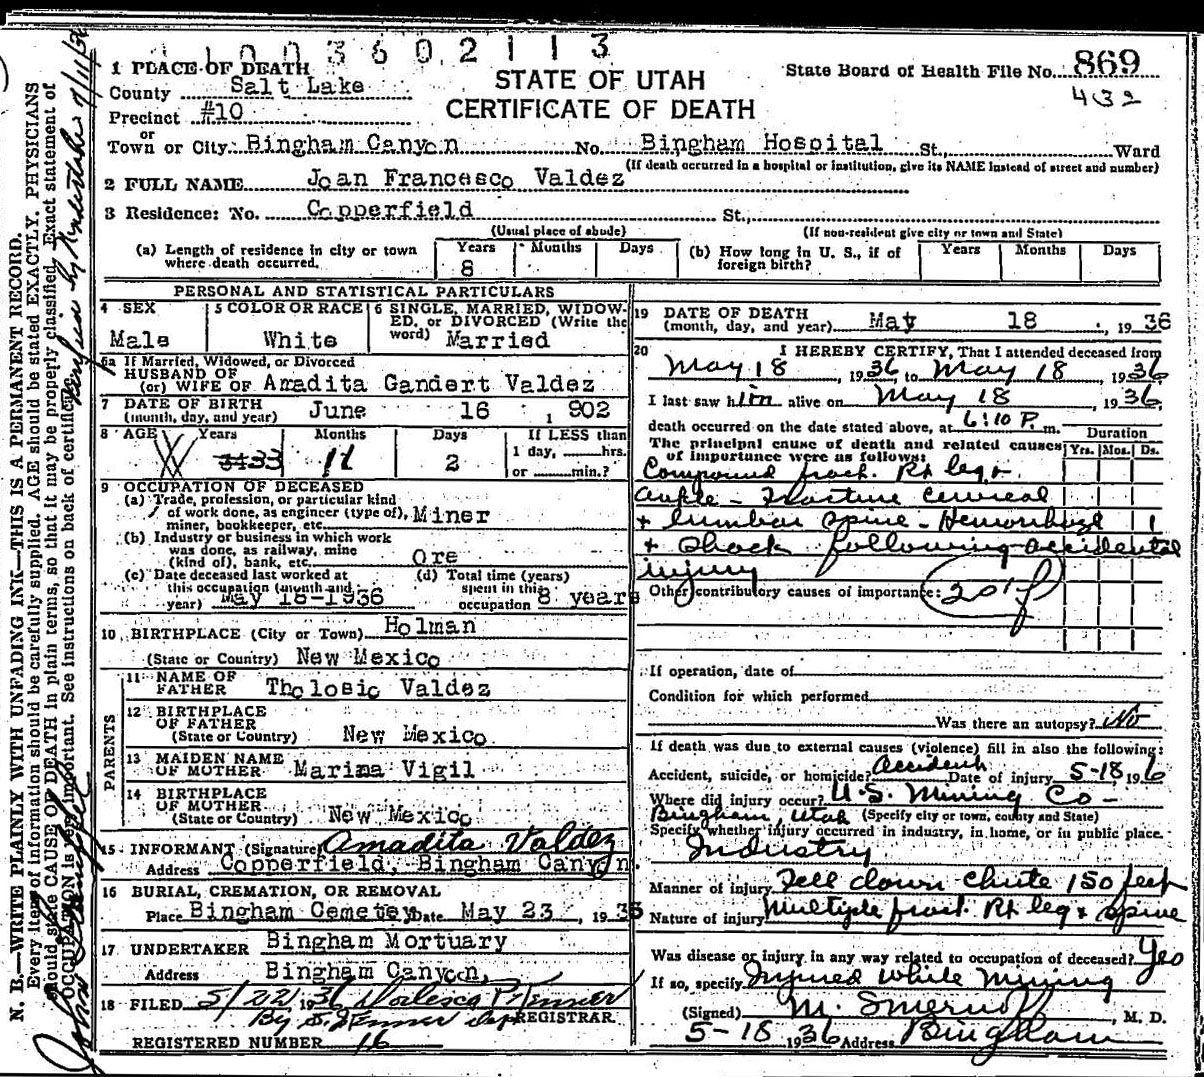 1 1 0 0 3 6 0 2 1 1 3
1 PLACE OF DEATH
County Salt Lake
Precinct #10
or
Town or City. Bingham Canyon No. Bingham Hospital St., Ward
(If death occurred in a hospital or institution, give its NAME instead of street and number)
STATE OF UTAH
CERTIFICATE OF DEATH
State Board of Health File No. 869
432
2 FULL NAME Joan Francesco Valdez
3 Residence: No. Copperfield St.,
(Usual place of abode) (If non-resident give city or town and State)
(a) Length of residence in city or town where death occurred. Years 8 Months Days
(b) How long in U. S., if of foreign birth? Years Months Days
PERSONAL AND STATISTICAL PARTICULARS
4 SEX Male
5 COLOR OR RACE White
6 SINGLE, MARRIED, WIDOWED, OR DIVORCED (Write the word) Married
6a If Married, Widowed, or Divorced
HUSBAND OF
(or) WIFE OF Amadita Gandert Valdez
7 DATE OF BIRTH
(month, day, and year) June 16 1902
8 AGE Years 34 33 Months 11 Days 2 If LESS than 1 day, hrs. or min.?
9 OCCUPATION OF DECEASED
(a) Trade, profession, or particular kind
of work done, as engineer (type of), Miner
miner, bookkeeper, etc.
(b) Industry or business in which work
was done, as railway, mine
(kind of), bank, etc. Ore
(c) Date deceased last worked at
this occupation (month and
year) May 18-1936
(d) Total time (years)
spent in this
occupation 8 years
10 BIRTHPLACE (City or Town) Holman
(State or Country) New Mexico
PARENTS
11 NAME OF
FATHER Tholosic Valdez
12 BIRTHPLACE
OF FATHER
(State or Country) New Mexico
13 MAIDEN NAME
OF MOTHER Marima Vigil
14 BIRTHPLACE
OF MOTHER
(State or Country) New Mexico
15 INFORMANT (Signature) Amadita Valdez
Address Copperfield, Bingham Canyon.
16 BURIAL, CREMATION, OR REMOVAL
Place Bingham Cemetey Date May 23, 1936
17 UNDERTAKER Bingham Mortuary
Address Bingham Canyon,
18 FILED 5/22 1936
REGISTRAR.
REGISTERED NUMBER 16
19 DATE OF DEATH
(month, day, and year) May 18, 1936
20 I HEREBY CERTIFY, That I attended deceased from
May 18, 1936 to May 18, 1936
I last saw him alive on May 18, 1936,
death occurred on the date stated above, at 6:10 P. m.
The principal cause of death and related causes
of importance were as follows: Duration Yrs. Mos. Ds.
Compound fract. Rt leg +
ankle - Fracture cervical
+ lumbar spine - Hemorrhage 1
+ Shock following accidental
injury
Other contributory causes of importance: 201f
If operation, date of
Condition for which performed
Was there an autopsy? No
If death was due to external causes (violence) fill in also the following:
Accident, suicide, or homicide? Accident Date of injury 5-18 1936
Where did injury occur? U.S. Mining Co -
Bingham, Utah (Specify city or town, county and State)
Specify whether injury occurred in industry, in home, or in public place.
Industry
Manner of injury Fell down chute 150 feet
Nature of injury Multiple fract. Rt leg + spine
Was disease or injury in any way related to occupation of deceased? Yes
If so, specify Injured While Mining
(Signed) M. , M. D.
5-18 1936 Address Bingham
N. B.—WRITE PLAINLY WITH UNFADING INK—THIS IS A PERMANENT RECORD.
Every item of information should be carefully supplied. AGE should be stated EXACTLY. PHYSICIANS
should state CAUSE OF DEATH in plain terms, so that it may be properly classified. Exact statement of
OCCUPATION is very important. See instructions on back of certificate.